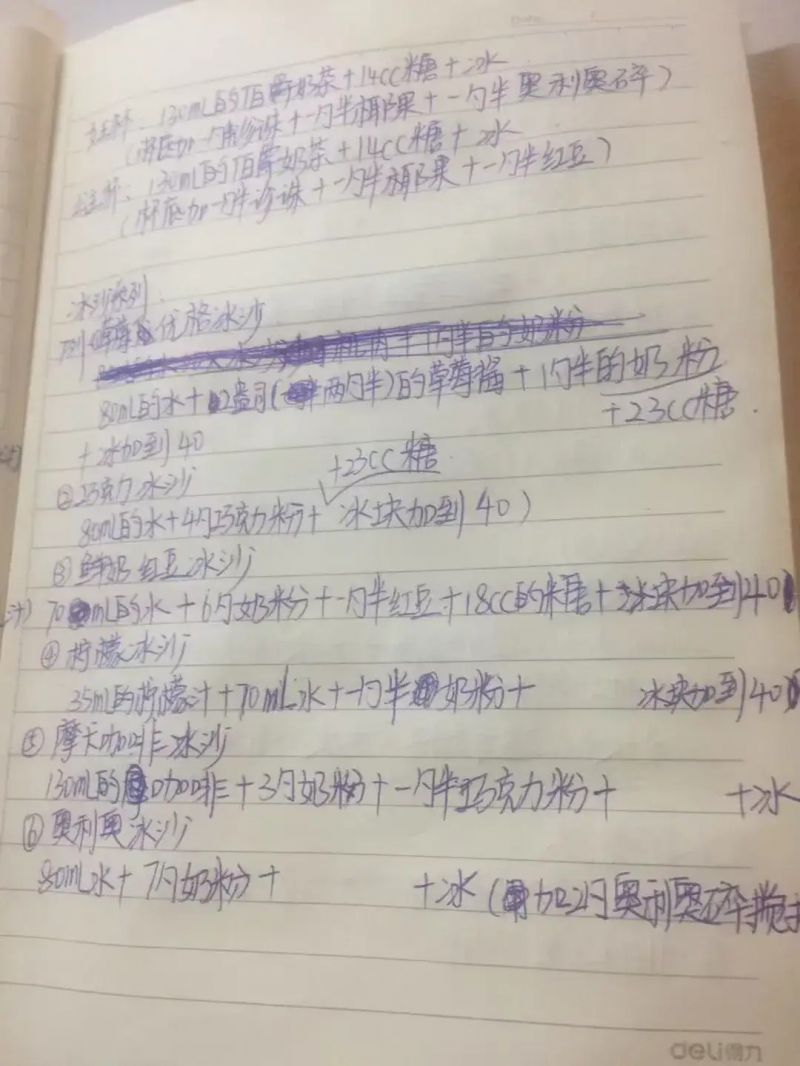 Date
130mL的伯爵奶茶+14cc糖+冰
(杯底加一勺半珍珠+一勺半椰果+一勺半奥利奥碎)
公主杯:130mL的伯爵奶茶+14cc糖+冰
(杯底加一勺半珍珠+一勺半椰果+一勺半红豆)
冰沙系列
草莓优格冰沙
80mL的水+2盎司(两勺半)的草莓酱+1勺半的奶粉
+23cc糖
+冰加到40
②巧克力冰沙
+23cc糖
80mL的水+4勺巧克力粉+冰块加到40)
③鲜奶红豆冰沙
70mL的水+6勺奶粉+一勺半红豆+18cc的糖+冰块加到40
④柠檬冰沙
35mL的柠檬汁+70mL水+一勺半奶粉+ 冰块加到40
⑤摩卡咖啡冰沙
130mL的咖啡+3勺奶粉+一勺半巧克力粉+ +冰
⑥奥利奥冰沙
80mL水+7勺奶粉+ +冰(加2勺奥利奥碎搅
deli得力